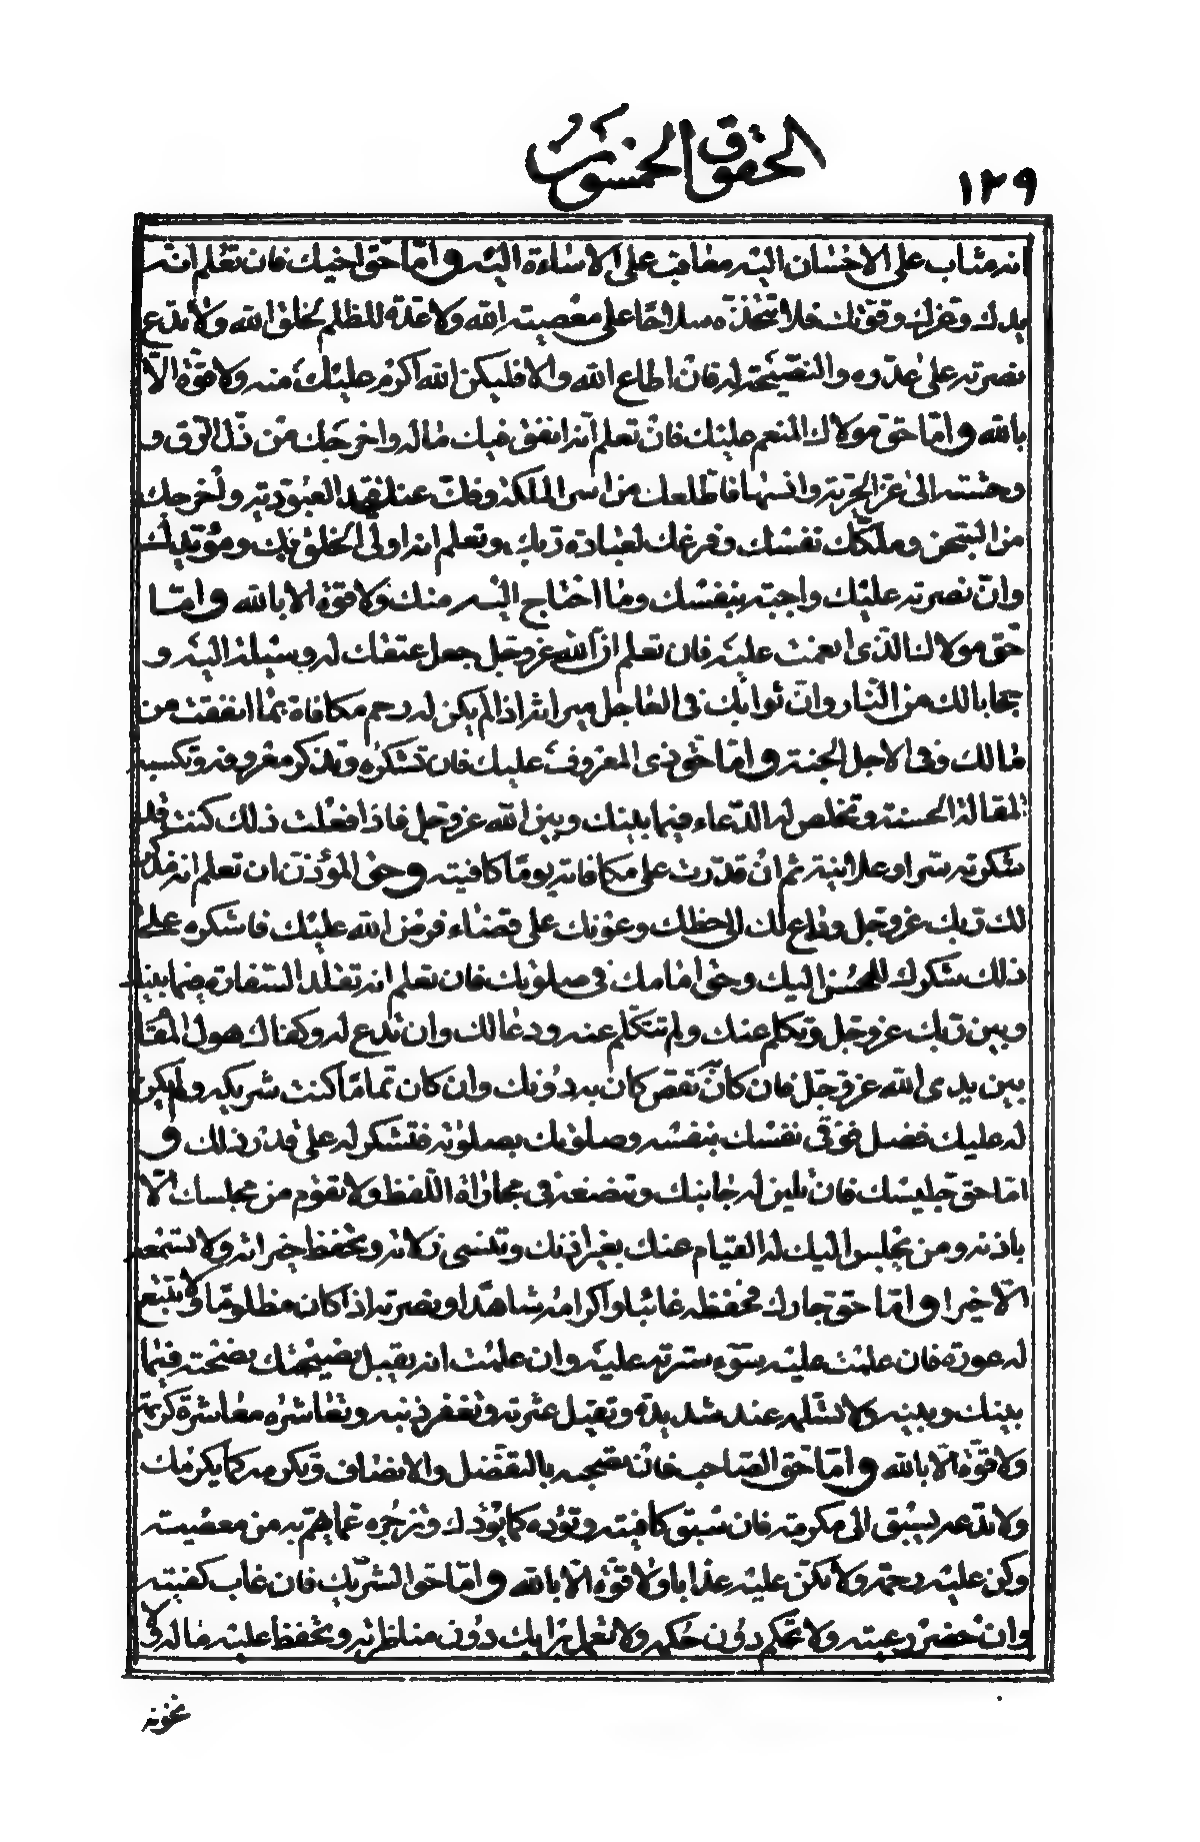 الحقوق الخمسون
١٢٩
انه مثاب على الاحسان اليه معاقب على الاساءة اليه و امّا حقّ اخيك فان تعلم انّه
يدك و عزك و قوّتك فلا تتّخذه سلاحا على معصية الله ولا عدّة للظلم لخلق الله ولا تدع
نصرته على عدّوه والنصيحة له فان اطاع الله والا فليكن الله اكرم عليك منه ولا قوّة الّا
بالله و امّا حقّ مولاك المنعم عليك فان تعلم انّه انفق فيك ماله واخرجك من ذلّ الرّق و
وحشته الى عزّ الحرّية وانسها فاطلعك من اسر الملكة وفك عنك قيد العبوديّة واخرجك
من السّجن وملكك نفسك وفرغك لعبادة ربك وتعلم انه اولى الخلق بك وموتك
وانّ نصرته عليك واجبة بنفسك وما احتاج اليه منك ولا قوّة الا بالله و امّا
حقّ مولاك الّذى انعمت عليه فان تعلم انّ الله عزوجل جعل عتقك له وسيلة اليه و
حجابا لك من النّار وانّ ثوابك فى العاجل ميراثه اذا لم يكن له رحم مكافاة بما انفقت من
مالك وفى الاجل الجنة و امّا حقّ ذى المعروف عليك فان تشكره وتذكر معروفه وتكسبه
المقالة الحسنة وتخلص له الدّعاء فيما بينك وبين الله عزوجل فاذا فعلت ذلك كنت قد
شكرته سرا وعلانية ثم ان قدرت على مكافاته يومًا كافيته و حقّ المؤذن ان تعلم انه مذكّر
لك ربك عزوجل وداع لك الى حظك وعونك على قضاء فرض الله عليك فاشكره على
ذلك شكرك للمحسن اليك وحق امامك فى صلوتك فان تعلم انه تقلد السّفارة فيما بينك
وبين ربك عزوجل وتكلم عنك ولم تتكلّم عنه ودعا لك ولم تدع له وكفاك هول المقام
بين يدى الله عزوجل فان كان نقص كان به دونك وان كان تمامًا كنت شريكه ولم يكن
له عليك فضل فوقى نفسك بنفسه وصلوتك بصلوته فتشكر له على قدر ذلك و
امّا حقّ جليسك فان تلين له جانبك وتنصفه فى مجازاة اللّفظ ولا تقوم من مجلسك الّا
باذنه ومن يجلس اليك له القيام عنك بغير اذنك وتنسى زلاته وتحفظ خيراته ولا تسمعه
الّا خيرا و امّا حقّ جارك فحفظه غائبا واكرامه شاهدًا ونصرته اذا كان مظلومًا ولا تتّبع
له عورة فان علمت عليه سوء سترته عليه وان علمت انه يقبل نصيحتك نصحته فيما
بينك وبينه ولا تسلمه عند شديدة وتقيل عثرته وتغفر ذنبه وتعاشره معاشرة كريمة
ولا قوّة الّا بالله و امّا حقّ الصّاحب فان تصحبه بالتفضّل والانصاف وتكرمه كما يكرمك
ولا تدعه يسبق الى مكرمة فان سبق كافيته وتودّه كما يودّك وتزجره عمّا يهمّ به من معصية
وكن عليه رحمة ولا تكن عليه عذابا ولا قوّة الّا بالله و امّا حقّ الشّريك فان غاب كفيته
وان حضر رعيته ولا تحكم دون حكمه ولا تعمل برايك دون مناظرته وتحفظ عليه ماله ولا
تخونه